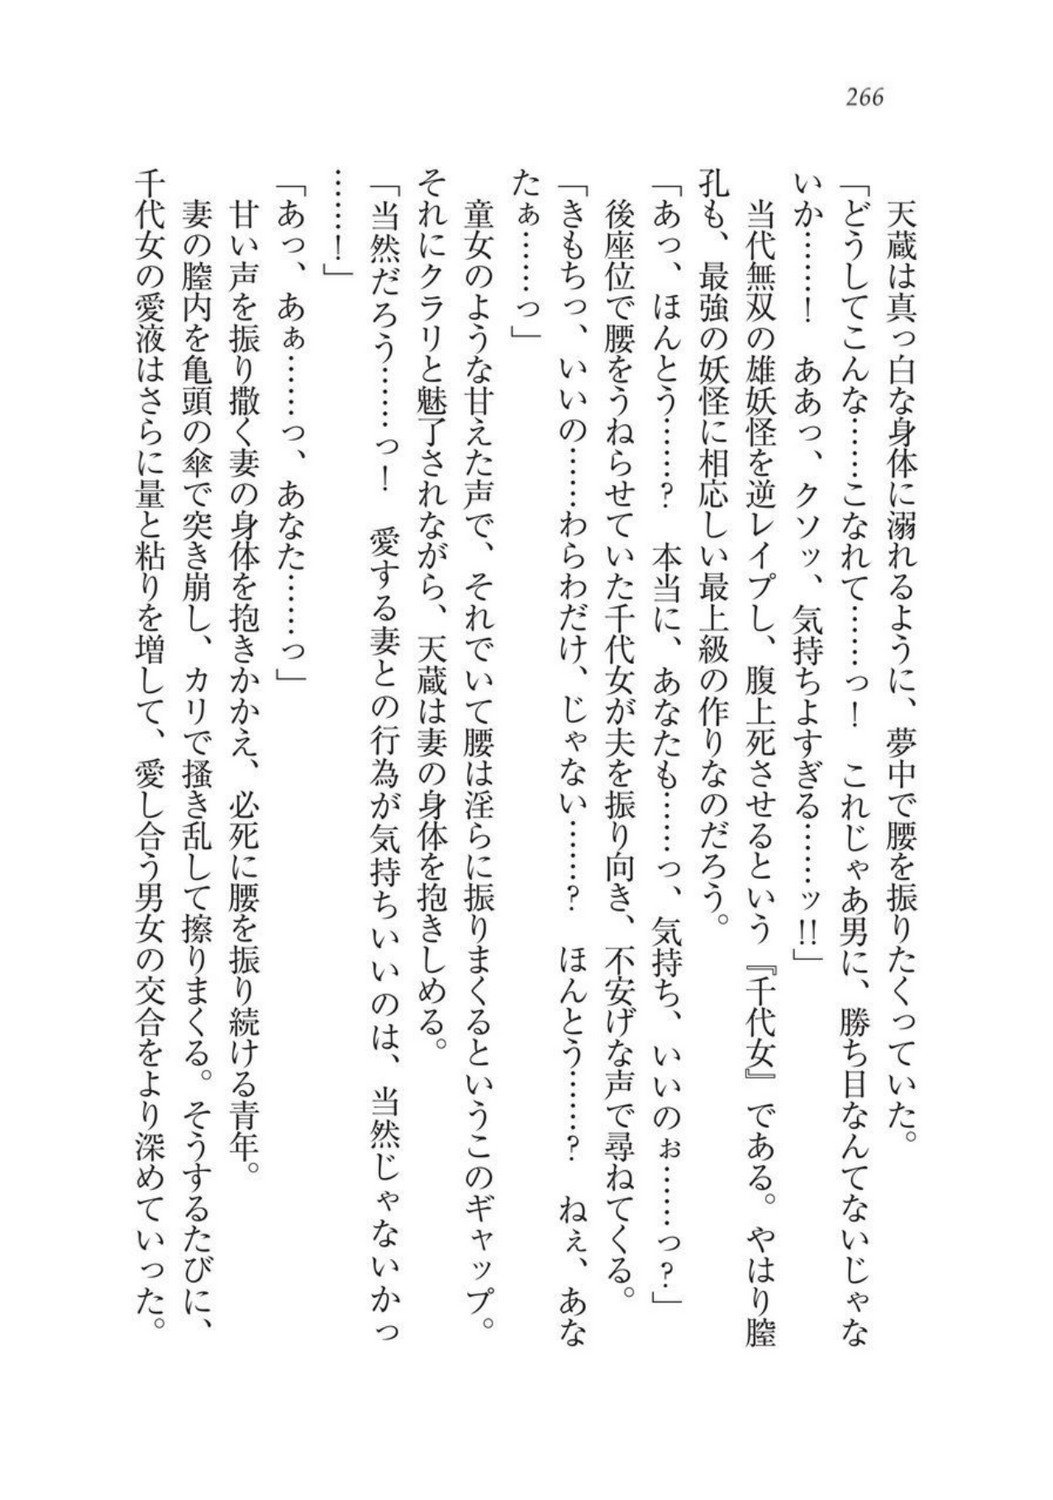 266
天蔵は真っ白な身体に溺れるように、夢中で腰を振りたくっていた。
「どうしてこんな……こなれて……っ！　これじゃあ男に、勝ち目なんてないじゃな
いか……！　ああっ、クソッ、気持ちよすぎる……ッ!!」
当代無双の雄妖怪を逆レイプし、腹上死させるという『千代女』である。やはり膣
孔も、最強の妖怪に相応しい最上級の作りなのだろう。
「あっ、ほんとう……？　本当に、あなたも……っ、気持ち、いいのぉ……っ？」
後座位で腰をうねらせていた千代女が夫を振り向き、不安げな声で尋ねてくる。
「きもちっ、いいの……わらわだけ、じゃない……？　ほんとう……？　ねぇ、あな
たぁ……っ」
童女のような甘えた声で、それでいて腰は淫らに振りまくるというこのギャップ。
それにクラリと魅了されながら、天蔵は妻の身体を抱きしめる。
「当然だろう……っ！　愛する妻との行為が気持ちいいのは、当然じゃないかっ
……！」
「あっ、あぁ……っ、あなた……っ」
甘い声を振り撒く妻の身体を抱きかかえ、必死に腰を振り続ける青年。
妻の膣内を亀頭の傘で突き崩し、カリで掻き乱して擦りまくる。そうするたびに、
千代女の愛液はさらに量と粘りを増して、愛し合う男女の交合をより深めていった。